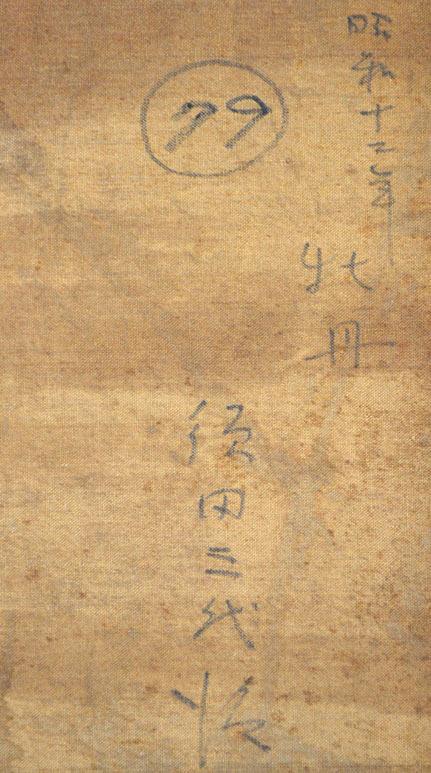 昭和十二年
牡丹
79
須田三代